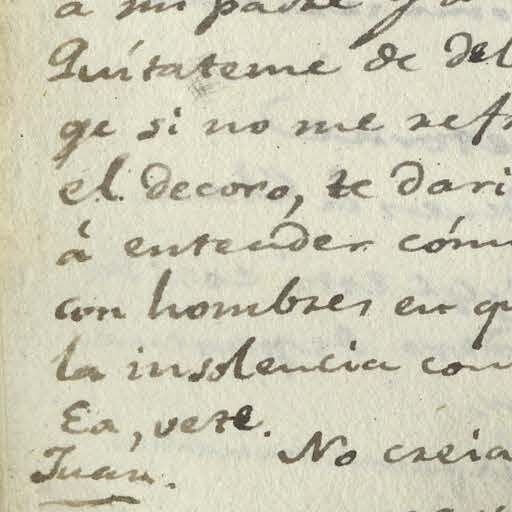 a mi padre y a
Quítateme de del
ge si no me refr
el decoro, te dari
á entender cóm
con hombres en q
la insolencia con
Ea, vete.
Juan. No creia